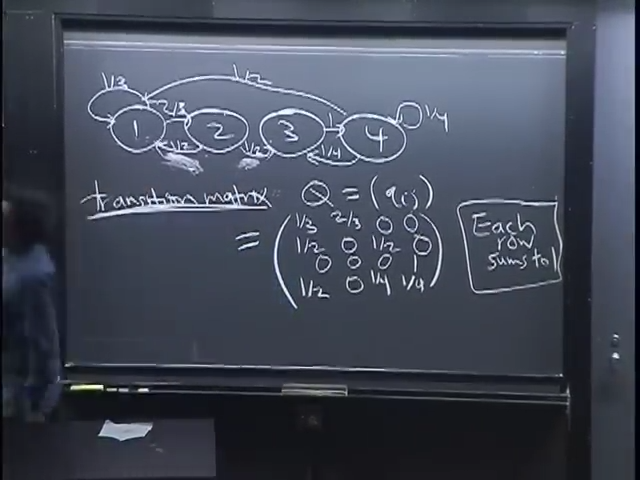 1/3 2/3 1/2 1/4
1 2 3 4
1/2 1/2 1 1/4
transition matrix Q = (qij)
= ( 1/3 2/3 0 0
1/2 0 1/2 0
0 0 0 1
1/2 0 1/4 1/4 )
Each
row
sums to 1